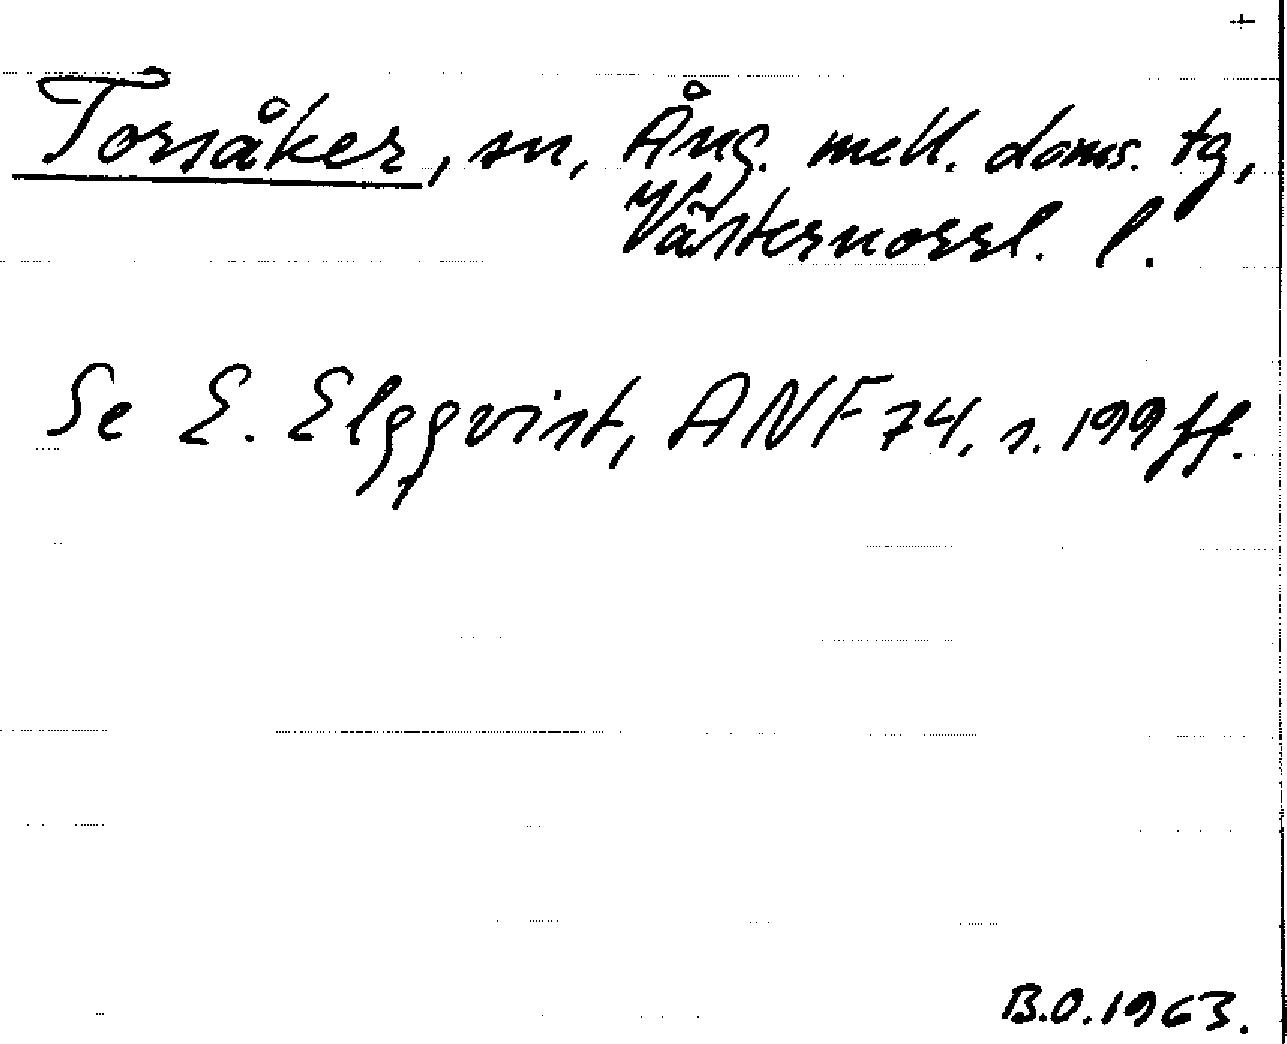 +
Torsåker, sn, Ång. mell. doms. tg,
Västernorrl. l.
Se E. Elgqvist, ANF 74, s. 199 ff.
B.O. 1963.